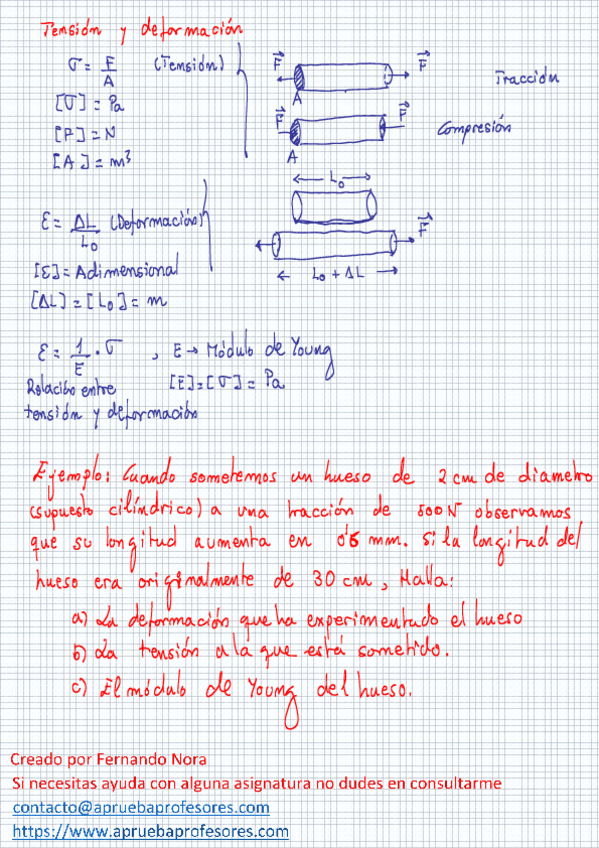 Tensión y deformación
σ = F/A (Tensión)
[σ] = Pa
[F] = N
[A] = m³
F F
A
Tracción
F F
A
Compresión
L₀
F
L₀ + ΔL
ε = ΔL/L₀ (Deformación)
[ε] = Adimensional
[ΔL] = [L₀] = m
ε = 1/E · σ , E → Módulo de Young
Relación entre [E] = [σ] = Pa
tensión y deformación
Ejemplo: Cuando sometemos un hueso de 2 cm de diametro
(supuesto cilíndrico) a una tracción de 500 N observamos
que su longitud aumenta en 0'6 mm. Si la longitud del
hueso era originalmente de 30 cm, Halla:
a) La deformación que ha experimentado el hueso
b) La tensión a la que está sometido.
c) El módulo de Young del hueso.
Creado por Fernando Nora
Si necesitas ayuda con alguna asignatura no dudes en consultarme
contacto@apruebaprofesores.com
https://www.apruebaprofesores.com